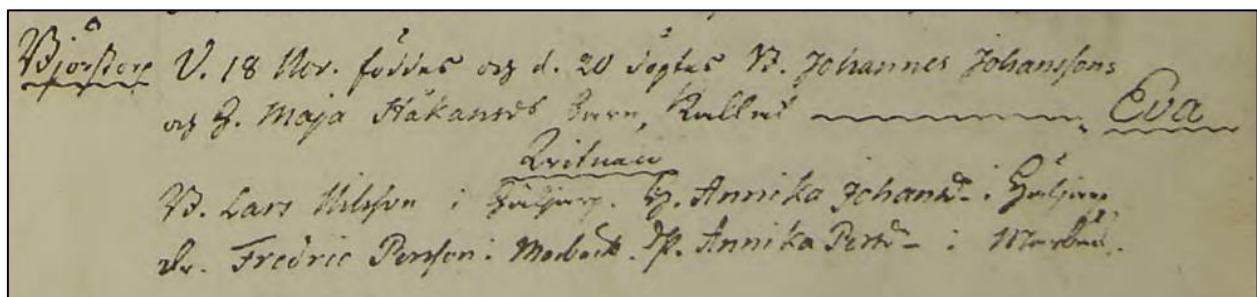 Björstorp D. 18 Nov. föddes och d. 20 döptes B. Johannes Johanssons
och H. Maja Håkansds barn, Kallad Eva
Vittnen
B. Lars Nilsson i H. Annika Johansd i
Dr. Fredric Persson i Marbäck. P. Annika Persd i Marbäck.